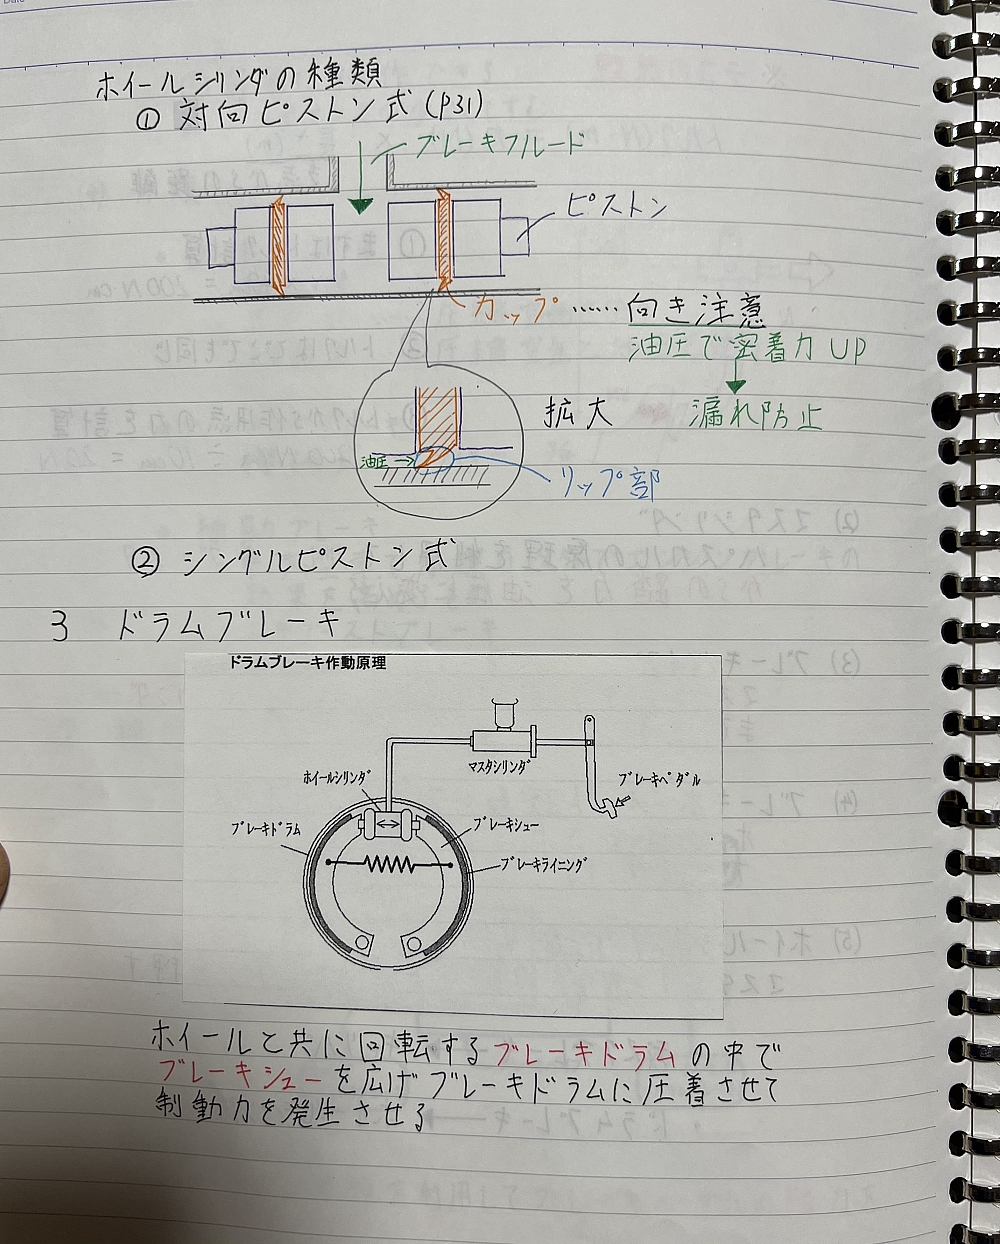 ホイールシリンダの種類
① 対向ピストン式(P31)
ブレーキフルード
ピストン
カップ……向き注意
油圧で密着力UP
漏れ防止
拡大
油圧→
リップ部
② シングルピストン式
3 ドラムブレーキ
ドラムブレーキ作動原理
マスタシリンダ
ホイールシリンダ
ブレーキペダル
ブレーキドラム
ブレーキシュー
ブレーキライニング
ホイールと共に回転するブレーキドラムの中で
ブレーキシューを広げブレーキドラムに圧着させて
制動力を発生させる